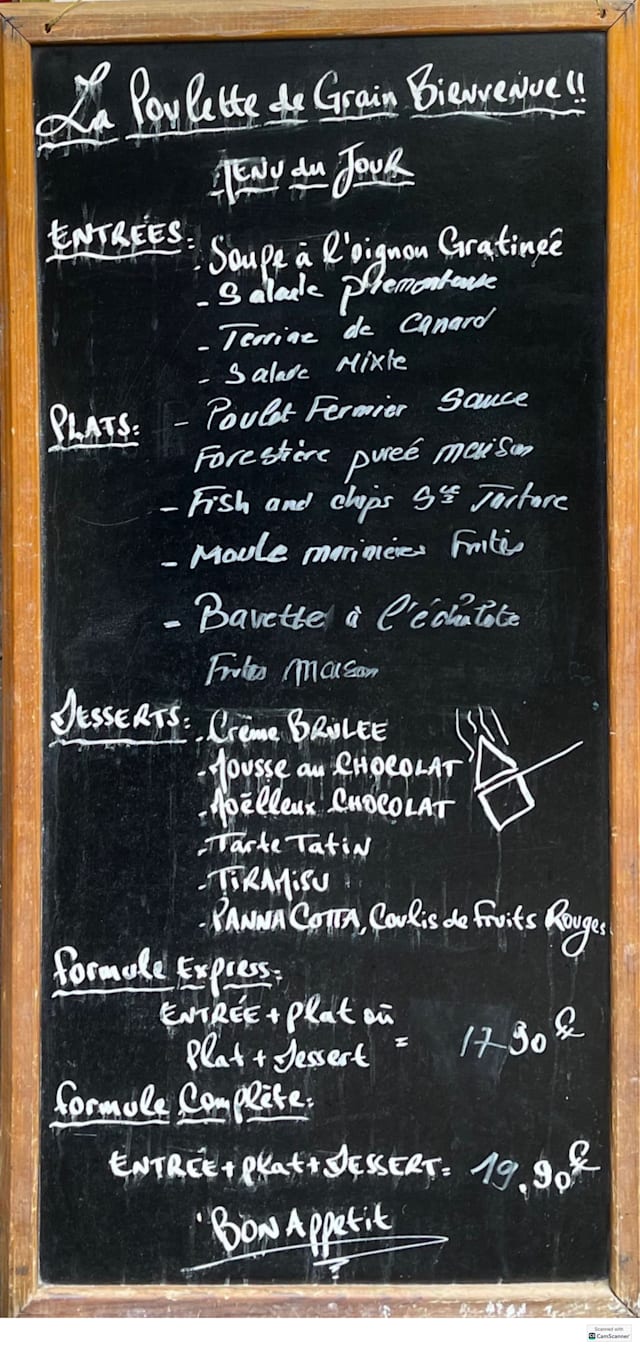 La Poulette de Grain Bienvenue !!
Menu du Jour
ENTRÉES:
- Soupe à l'oignon Gratineé
- Salade piemontaise
- Terrine de canard
- Salade Mixte
PLATS:
- Poulet Fermier Sauce
Forestière pureé maison
- Fish and chips Sce Tartare
- Moule marinières Frites
- Bavette à l'échalote
Frites Maison
DESSERTS:
- Crème BRULEE
- Mousse au CHOCOLAT
- Moëlleux CHOCOLAT
- Tarte Tatin
- TiRAMiSU
- PANNA COTTA, Coulis de Fruits Rouges
formule Express:
ENTRÉE + plat où
Plat + Dessert = 17,90 €
formule Complète:
ENTRÉE + plat + DESSERT = 19,90 €
BON Appetit
Scanned with
CamScanner